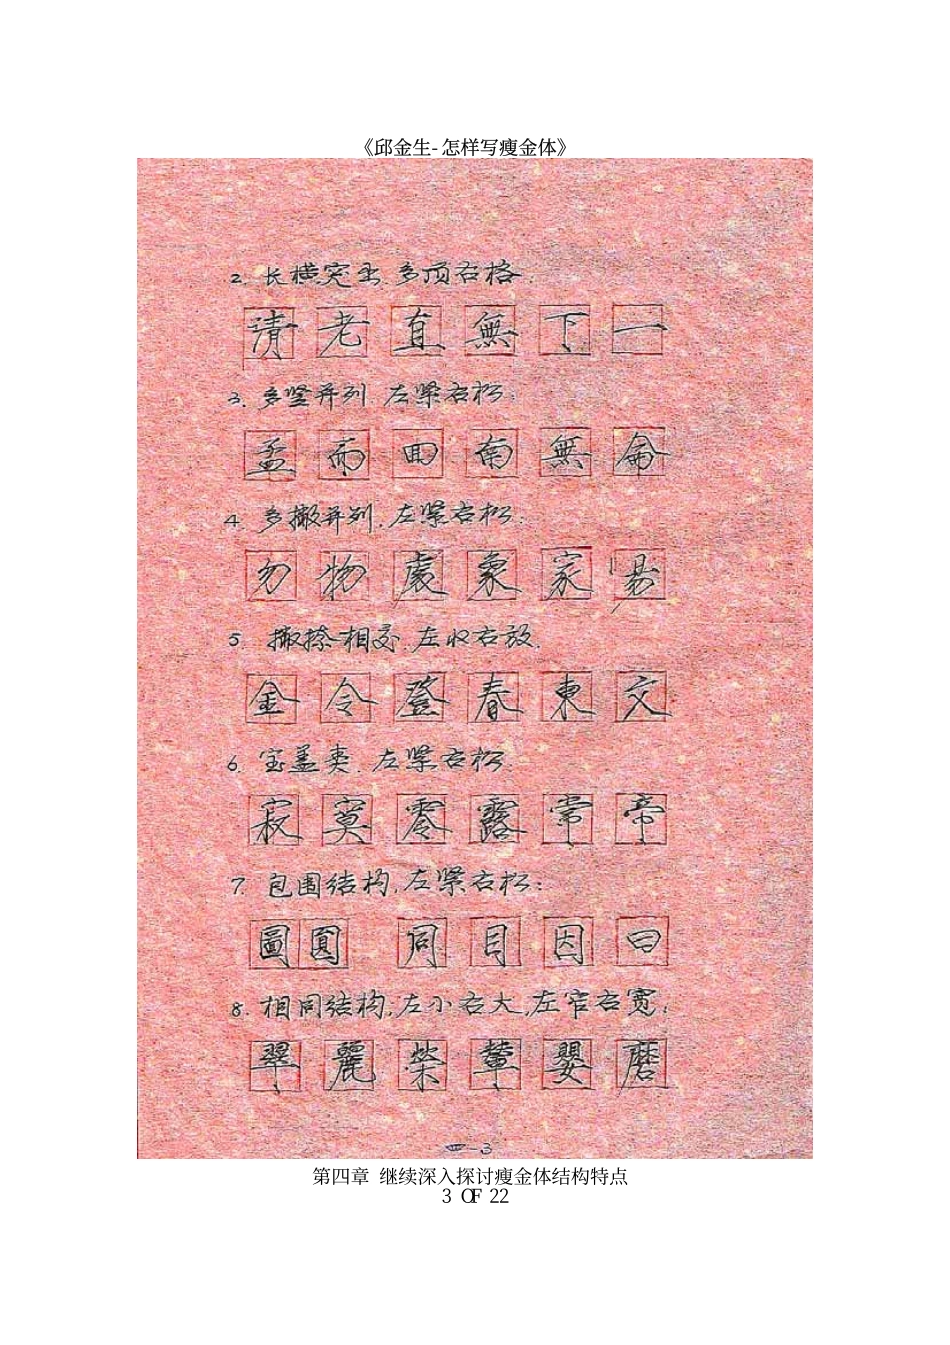 《邱金生-怎样写瘦金体》
2. 长横突出.多顶右格.
清老直無下一
3. 多竖并列.左紧右松:
孟而回南無侖
4. 多撇并列.左紧右松:
勿物處象家易
5. 撇捺相交.左收右放.
金令登春東文
6. 宝盖类.左紧右松
寂寞零露常帝
7. 包围结构.左紧右松:
圖圓 同目因曰
8. 相同结构:左小右大,左窄右宽:
翠麗榮輦嬰磨
四-3
第四章 继续深入探讨瘦金体结构特点
3 OF 22